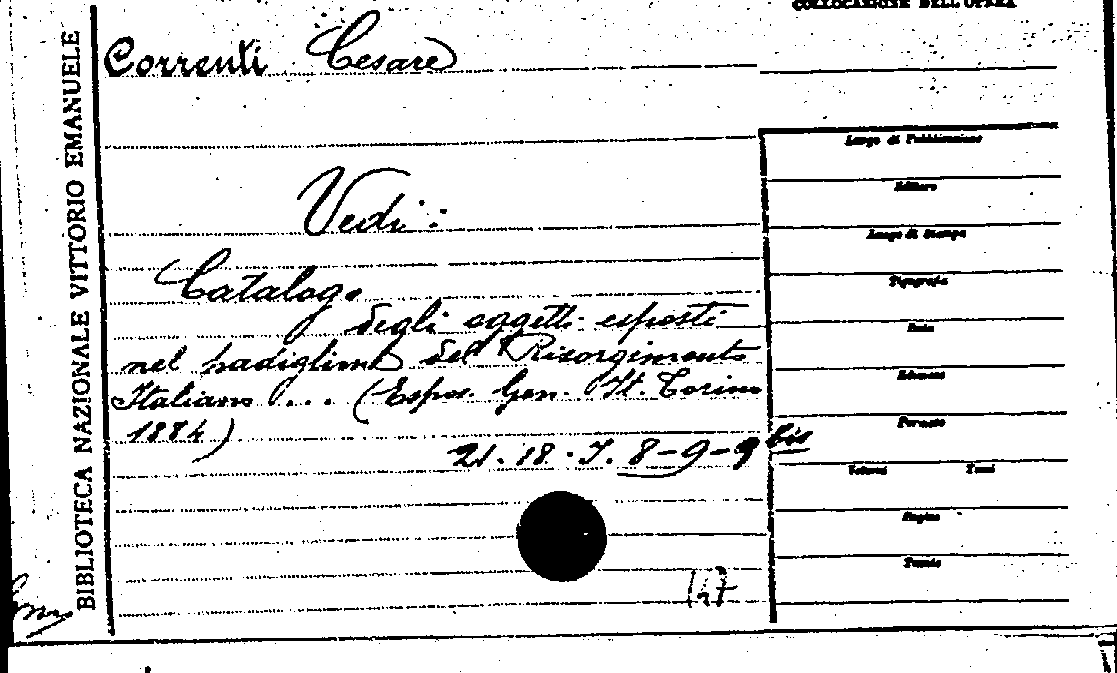 COLLOCAZIONE DELL'OPERA
BIBLIOTECA NAZIONALE VITTORIO EMANUELE
Correnti Cesare
Vedi:
Catalogo
degli oggetti esposti
nel padiglione del Risorgimento
Italiano ... (Espos. Gen. It. Torino
1884)
21. 18. J. 8-9-9 bis
147
Luogo di Pubblicazione
Editore
Luogo di Stampa
Tipografia
Data
Edizione
Formato
Volumi Tomi
Pagine
Tavole